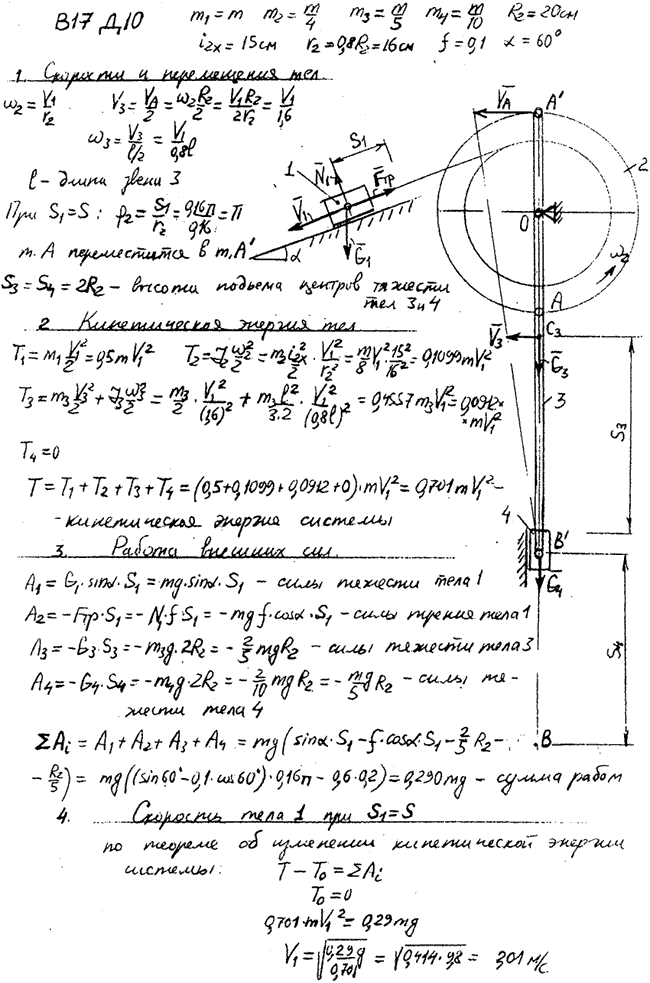 В17 Д10
m₁ = m m₂ = m/4 m₃ = m/5 m₄ = m/10 R₂ = 20см
i₂ₓ = 15см r₂ = 0,8R₂ = 16см f = 0,1 α = 60°
1. Скорости и перемещения тел
ω₂ = V₁/r₂ V₃ = V_A/2 = ω₂R₂/2 = V₁R₂/2r₂ = V₁/1,6
ω₃ = V₃/(l/2) = V₁/0,8l
l - длина звена 3
При S₁ = S: φ₂ = S₁/r₂ = 0,16π/0,16 = π
т. А переместится в т. А'
S₃ = S₄ = 2R₂ - высоты подъема центров тяжести
тел 3 и 4
V̄_A A'
S₁
1 N̄₁ F̄тр
V̄₁ Ḡ₁ α
2
O
ω₂
A
V̄₃ C₃
Ḡ₃
3
S₃
4
B'
Ḡ₄
S₄
B
2 Кинетическая энергия тел
T₁ = m₁V₁²/2 = 0,5mV₁² T₂ = J₂ω₂²/2 = m₂i₂ₓ²/2 · V₁²/r₂² = m/8 V₁² 15²/16² = 0,1099mV₁²
T₃ = m₃V₃²/2 + J₃ω₃²/2 = m₃/2 · V₁²/(1,6)² + m₃l²/3·2 · V₁²/(0,8l)² = 0,4557m₃V₁² = 0,0912×
×mV₁²
T₄ = 0
T = T₁ + T₂ + T₃ + T₄ = (0,5 + 0,1099 + 0,0912 + 0) · mV₁² = 0,701mV₁² -
- кинетическая энергия системы
3. Работа внешних сил.
A₁ = G₁·sinα·S₁ = mg·sinα·S₁ - силы тяжести тела 1
A₂ = -Fтр·S₁ = -N₁·f·S₁ = -mgf·cosα·S₁ - силы трения тела 1
A₃ = -G₃·S₃ = -m₃g·2R₂ = -2/5 mgR₂ - силы тяжести тела 3
A₄ = -G₄·S₄ = -m₄g·2R₂ = -2/10 mgR₂ = -m/5 gR₂ - силы тя-
жести тела 4
ΣAᵢ = A₁ + A₂ + A₃ + A₄ = mg(sinα·S₁ - f·cosα·S₁ - 2/5 R₂ -
- R₂/5) = mg((sin60° - 0,1·cos60°)·0,16π - 0,6·0,2) = 0,290mg - сумма работ
4. Скорость тела 1 при S₁ = S
по теореме об изменении кинетической энергии
системы: T - T₀ = ΣAᵢ
T₀ = 0
0,701·mV₁² = 0,29mg
V₁ = √(0,29g/0,701) = √(0,414·9,8) = 2,01 м/с.